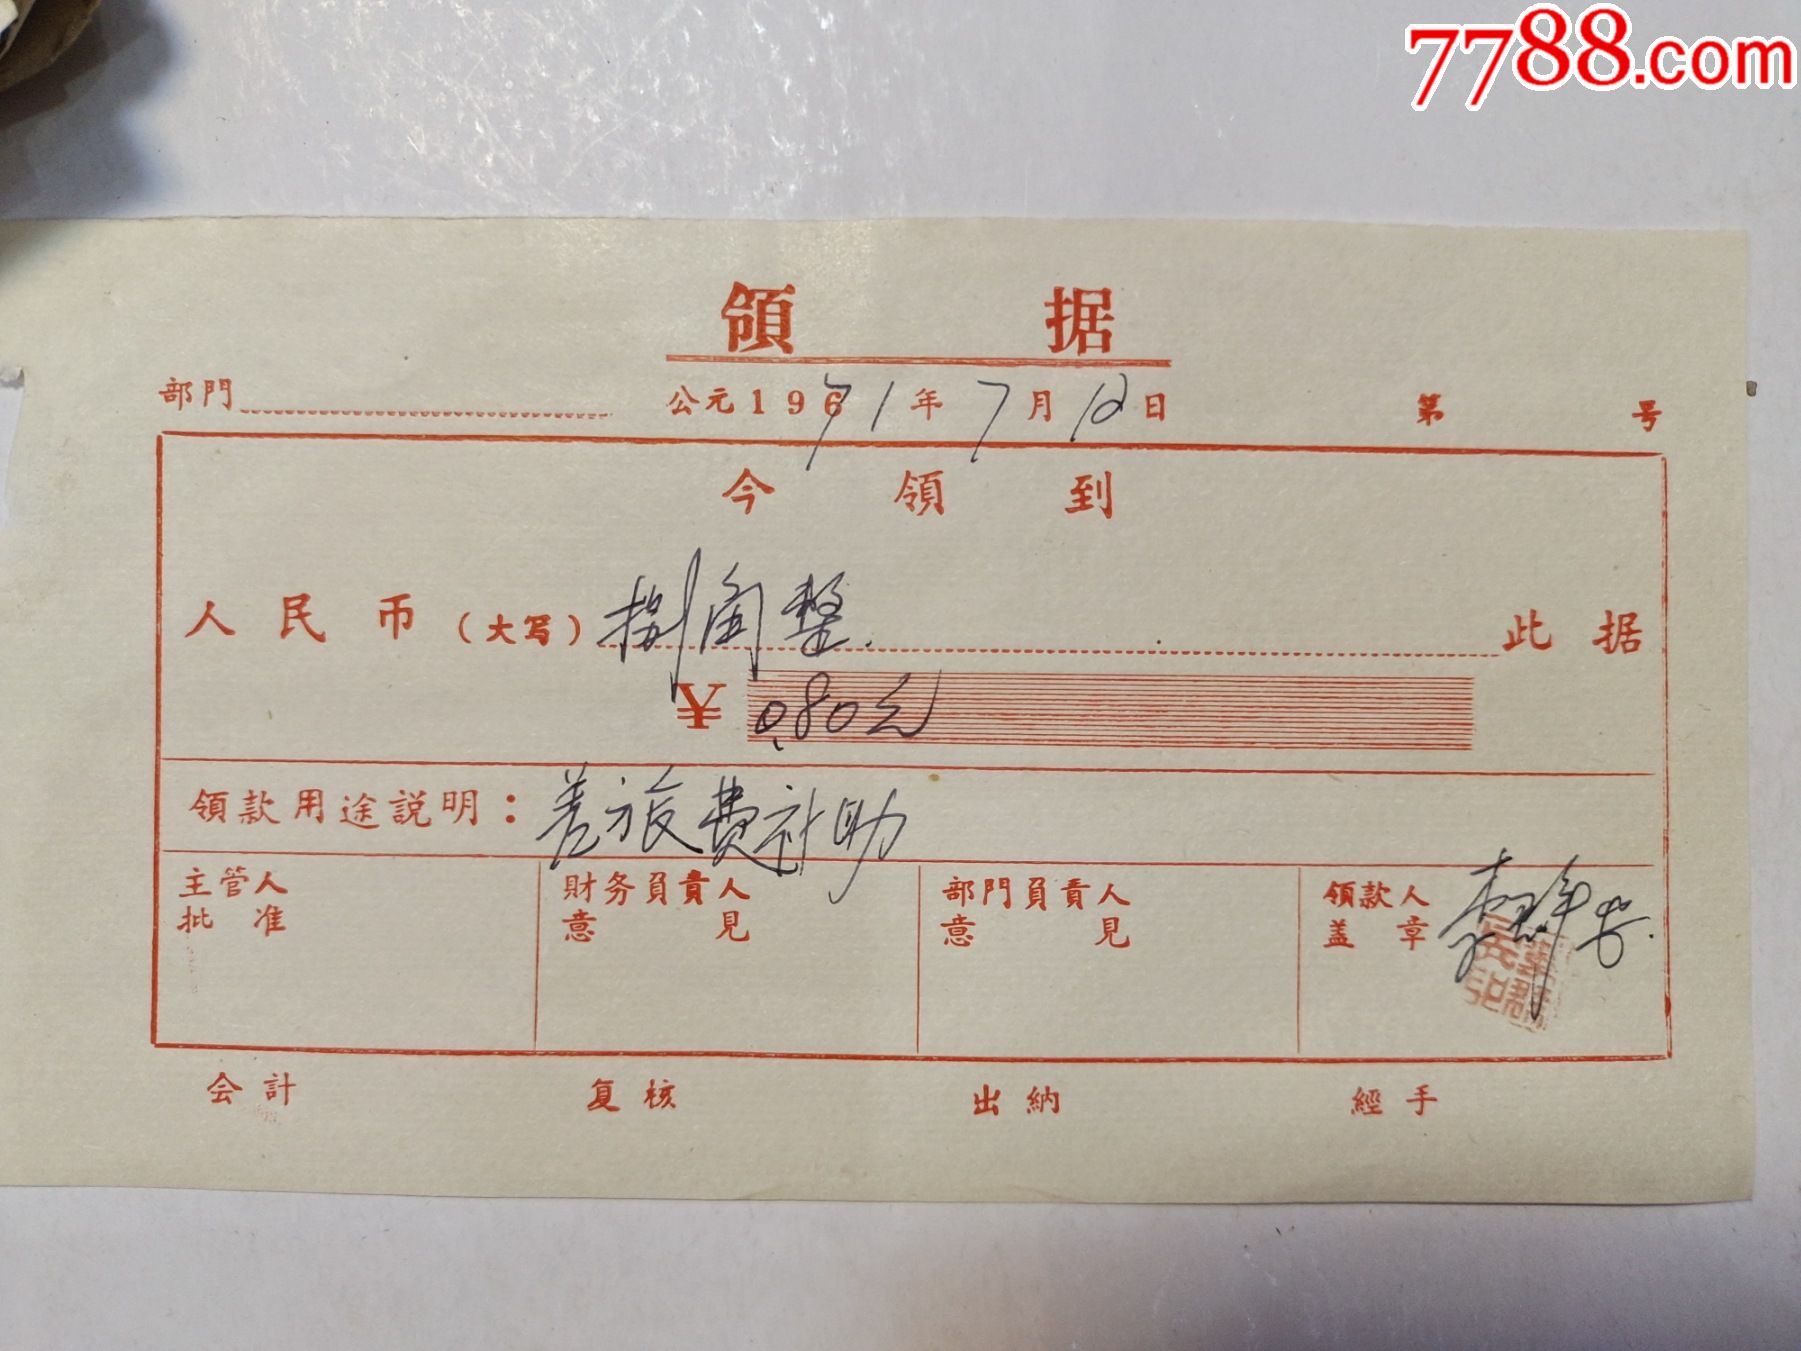 7788.com
領 据
部門 公元1971年7月12日 第 号
今 領 到
人民币(大写) 捌角整. 此据
¥ 0.80元
領款用途説明: 差旅費补助
主管人批准 財务負責人意見 部門負責人意見 領款人盖章
会計 复核 出納 經手